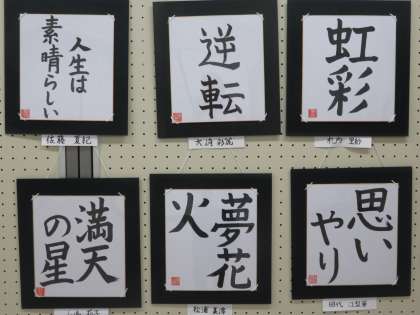 人生は
素晴らしい
佐藤 夏紀
逆転
虹彩
満天
の星
夢花
火
松浦 美澪
思い
やり